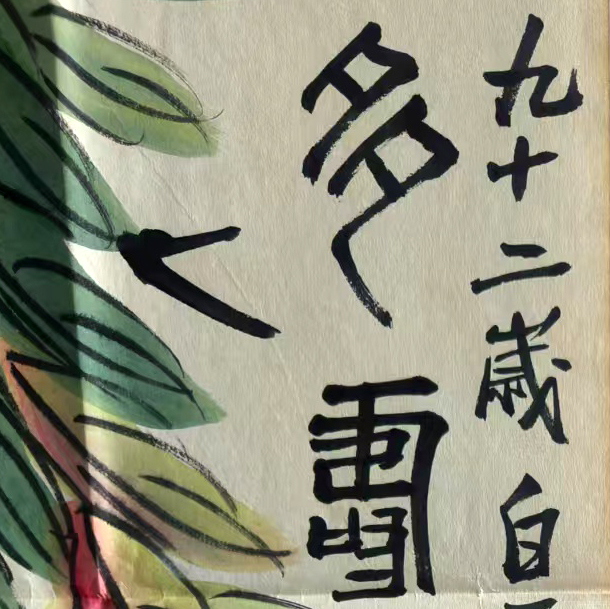 九十二歲白
多壽